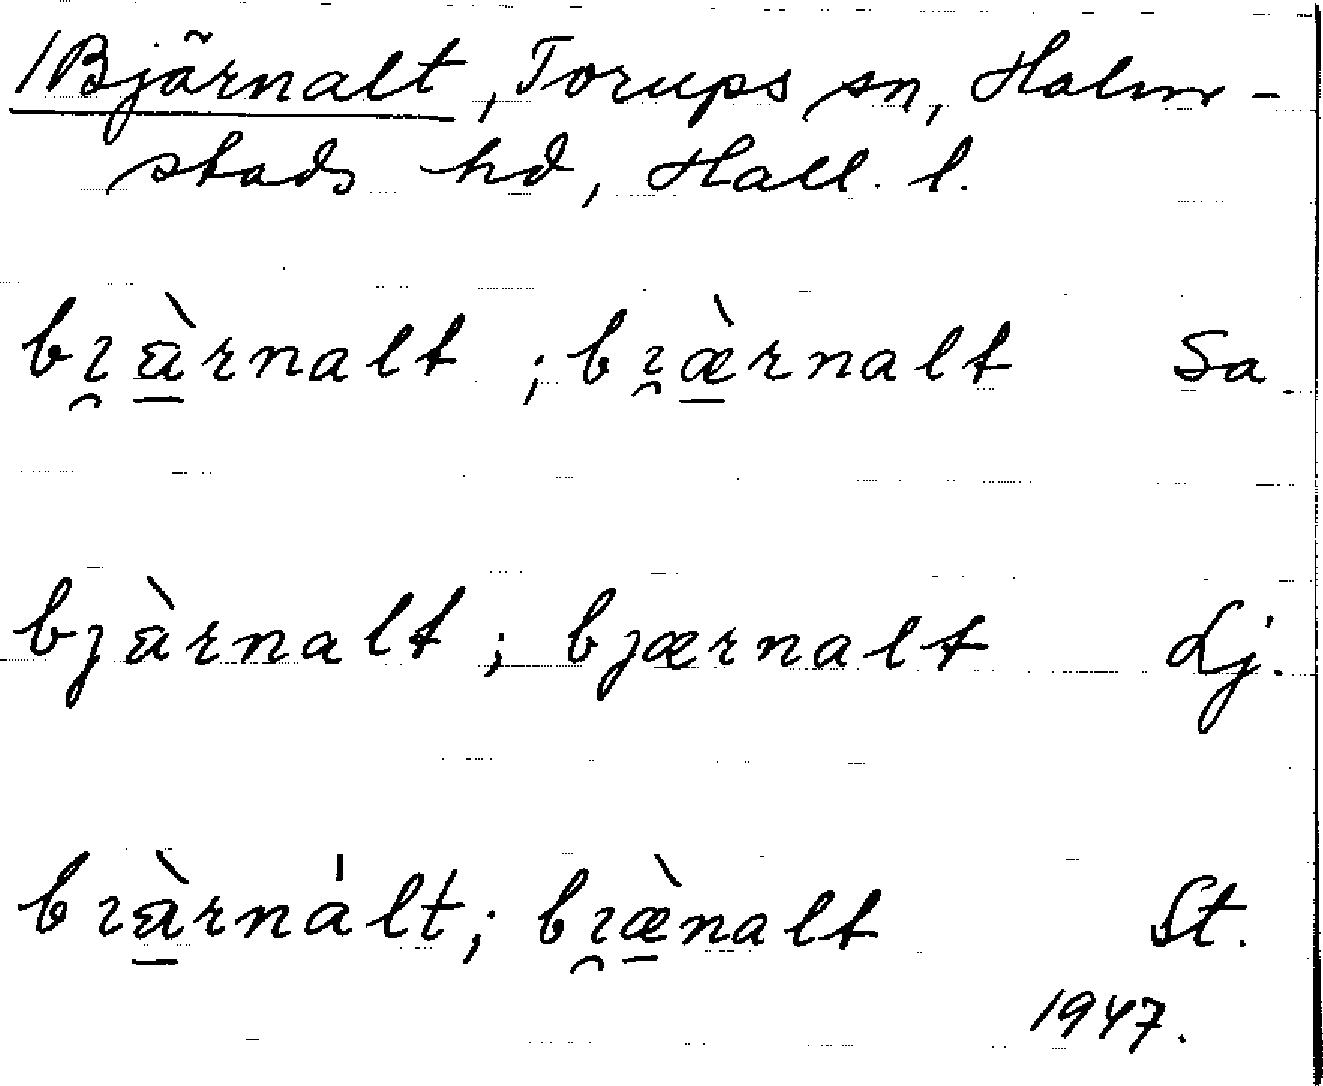 /Bjärnalt, Torups sn, Halm-
stads hd, Hall. l.
bɿ̯à̱rnalt ; bɿ̯æ̱̀rnalt Sa.
bjàrnalt ; bjærnalt Lj.
bɿà̱rnált; bɿ̯æ̱̀nalt St.
1947.